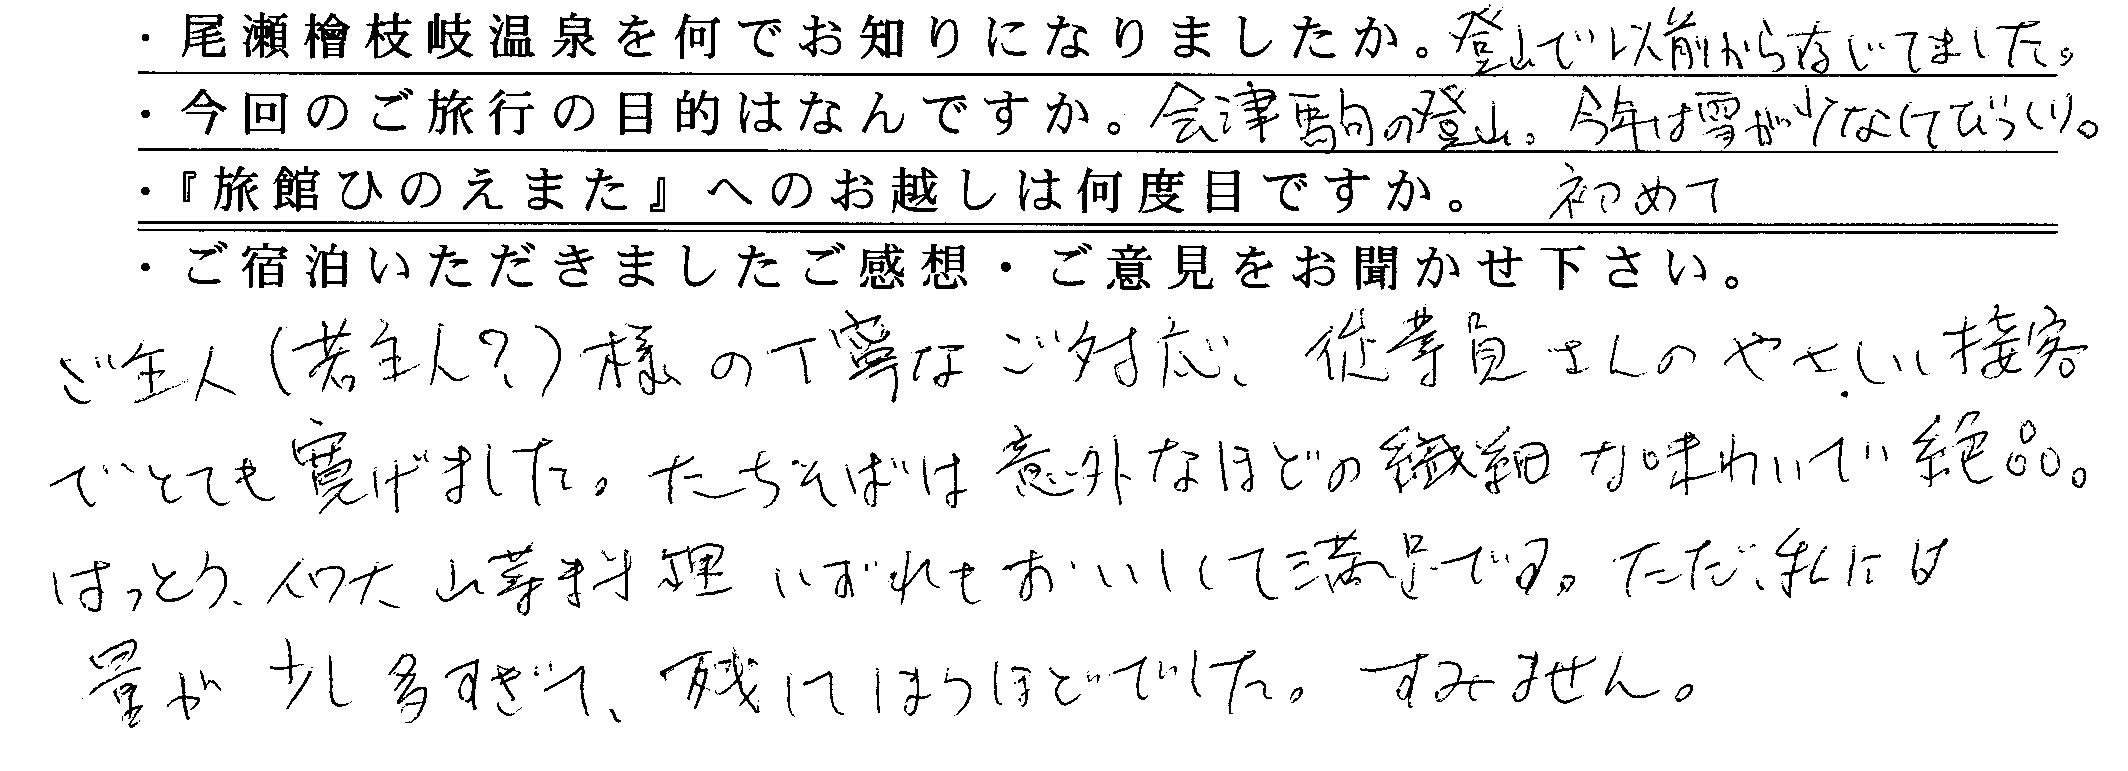 ・尾瀬檜枝岐温泉を何でお知りになりましたか。登山で以前から存じてました。
・今回のご旅行の目的はなんですか。会津駒の登山。今年は雪が少なくてびっくり。
・『旅館ひのえまた』へのお越しは何度目ですか。 初めて
・ご宿泊いただきましたご感想・ご意見をお聞かせ下さい。
ご主人(若主人?)様の丁寧なご対応、従業員さんのやさしい接客
でとても寛げました。たちそばは意外なほどの繊細な味わいで絶品。
はっとう、イワナ、山菜料理いずれもおいしくて満足です。ただ、私には
量が少し多すぎて、残してしまうほどでした。すみません。